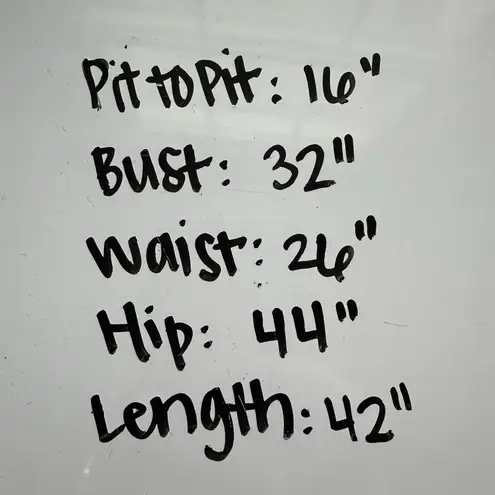 Pit to Pit: 16"
Bust: 32"
Waist: 26"
Hip: 44"
Length: 42"